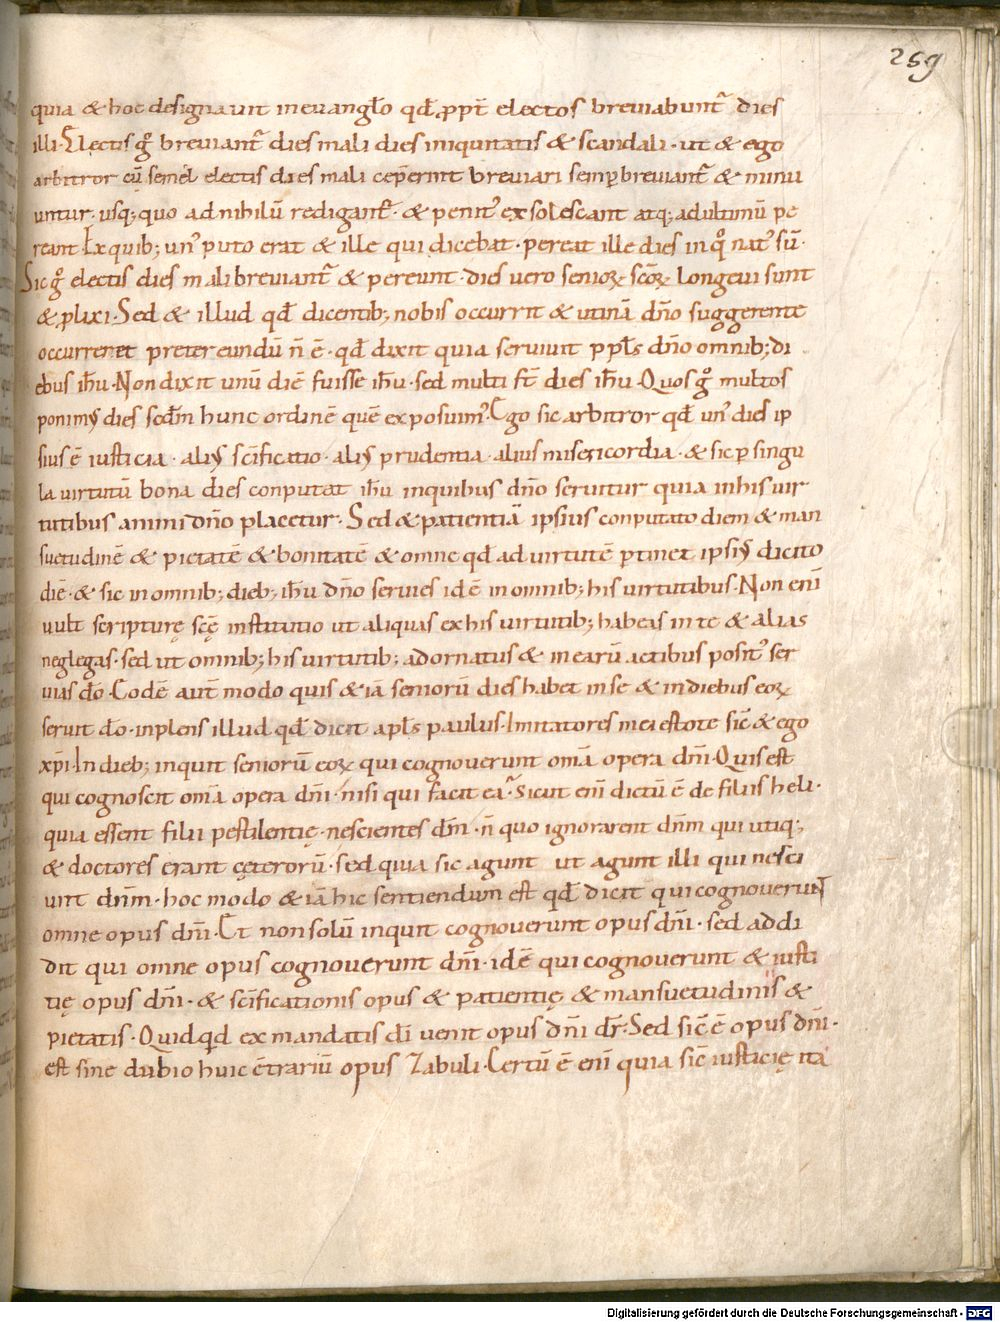 259
quia & hoc designauit in euanglo qđ ꝓpt̄ electos breuiabunt̄ dies
illi· Electis gͦ breuiant̄ dies mali dies iniquitatis & scandali · ut & ego
arbitror cū semel electis dies mali cep̄erint breuiari semp̱ breuiant̄ & minu
untur· usq; quo ad nihilū redigant̄· & penit᾽ exsolescant atq; ad ultimū pe
reant Ex quib; un᾽ puto erat & ille qui dicebat · pereat ille dies in qͦ nat᾽ sū·
Sic gͦ electis dies mali breuiant̄ & pereunt · dies uero senioꝝ sc̄oꝝ longeui sunt
& ꝓlixi · Sed & illud qđ dicentib; nobis occurrit & utinā dn̄o suggerente
occurreret pretereundū n̄ ē · qđ dixit quia seruiuit ppl̄s dn̄o omnib; di
ebus ih̄u · Non dixit unū diē fuisse ih̄u · sed multi st̄ dies ih̄u · Quos gͦ multos
ponimꝰ dies scd̄m hunc ordinē quē exposuim᾽· Ego sic arbitror qđ un᾽ dies ip
sius ē iusticia · aliꝰ sc̄ificatio · aliꝰ prudentia · alius misericordia · & sic ꝑ singu
la uirtutū bona dies conputat ih̄u in quibus dn̄o seruitur quia in his uir
tutibus animi dn̄o placetur · Sed & patientiā ipsius conputato diem & man
suetudinē & pietatē & bonitatē & omne qđ ad uirtutē ꝑtinet ipsiꝰ dicito
diē · & sic in omnib; dieb; ih̄u dn̄o seruies id ē in omnib; his uirtutibus · Non enī
uult scripturę scę̄ institutio ut aliquas ex his uirtutib; habeas in te & alias
neglegas · sed ut omnib; his uirtutib; adornatus & in earū actibus posit᾽ ser
uias dō · Eodē aut̄ modo quis & iā seniorū dies habet in se & in diebus eoꝝ
seruit dō · inplens illud qđ dicit apl̄s paulus · Imitatores mei estote sic̄ & ego
xp̄i · In dieb; inquit seniorū eoꝝ qui cognouerunt om̄a opera dn̄i · Quis est
qui cognoscit om̄a opera dn̄i · nisi qui facit ea · Sicut enī dictū ē de filiis heli ·
quia essent filii pestilentię · nescientes dn̄m · n̄ quo ignorarent dn̄m qui utiq;
& doctores erant cęterorū · sed quia sic agunt ut agunt illi qui nesci
unt dn̄m · hoc modo & iā hic sentiendum est qđ dicit qui cognouerunt
omne opus dn̄i · Et non solū inquit cognouerunt opus dn̄i · sed addi
dit qui omne opus cognouerunt dn̄i · id ē qui cognouerunt & iusti
tię opus dn̄i · & sc̄ificationis opus & patientię & mansuetudinis &
pietatis · Quidqđ ex mandatis dī uenit opus dn̄i dr̄ · Sed sic̄ ē opus dn̄i ·
est sine dubio huic c̄trariū opus zabuli · Certū ē enī quia sic̄ iusticię ita
Digitalisierung gefördert durch die Deutsche Forschungsgemeinschaft - DFG